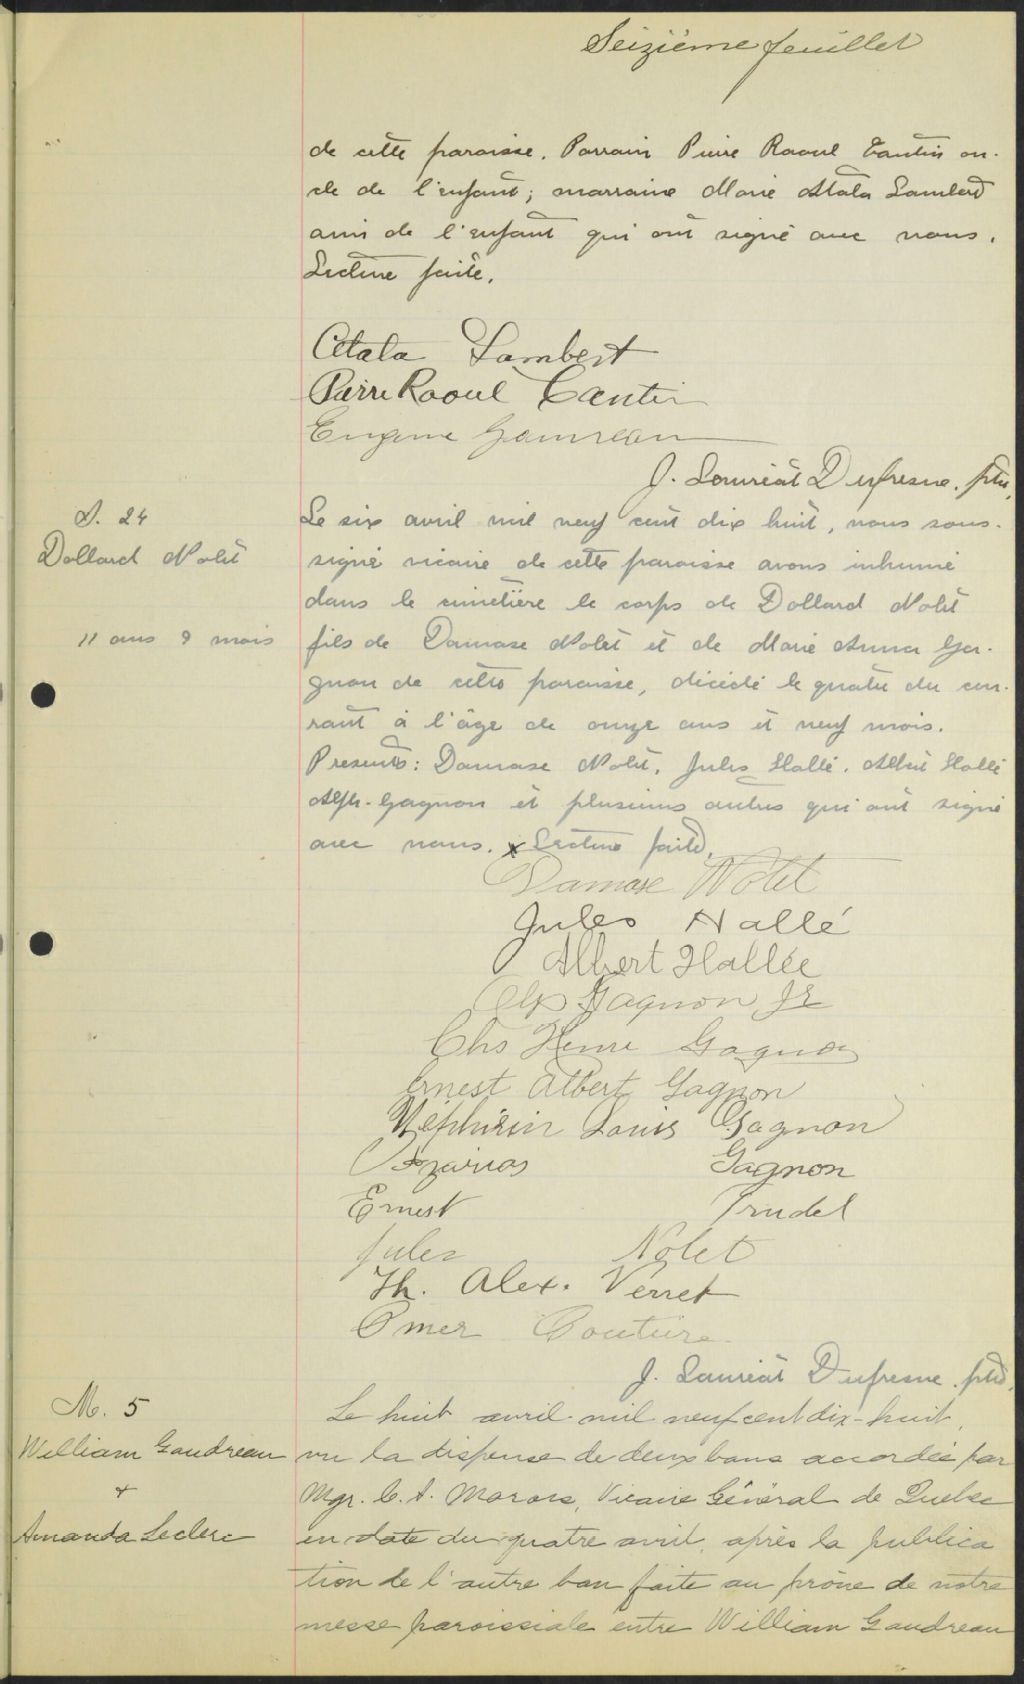 Seizième feuillet
de cette paroisse. Parrain Pierre Raoul Cantin on-
cle de l'enfant; marraine Marie Atala Lambert
amie de l'enfant qui ont signé avec nous.
Lecture faite.
Atala Lambert
Pierre Raoul Cantin
Eugene
J. Lauréat Dufresne. ptre,
S. 24
Dollard Nolet
11 ans 9 mois
Le six avril mil neuf cent dix huit, nous sous-
signé vicaire de cette paroisse avons inhumé
dans le cimetière le corps de Dollard Nolet
fils de Damase Nolet et de Marie Anna Ga-
gnon de cette paroisse, décédé le quatre du cou-
rant à l'âge de onze ans et neuf mois.
Présents: Damase Nolet, Jules Hallé, Albert Hallé
Alph. Gagnon et plusieurs autres qui ont signé
avec nous. x Lecture faite.
Damase Nolet
Jules Hallé
Albert Hallée
Gagnon Jr
Chs Henri Gagnon
Ernest Albert Gagnon
Zéphirin Louis Gagnon
Azarias Gagnon
Ernest Trudel
Jules Nolet
Th. Alex. Verret
Omer Couture
J. Lauréat Dufresne. ptre,
M. 5
William Gaudreau
+
Amanda Leclerc
Le huit avril mil neuf cent dix-huit,
vu la dispense de deux bans accordée par
Mgr. C. A. Marois, Vicaire Général de Québec
en date du quatre avril, après la publica
tion de l'autre ban faite au prône de notre
messe paroissiale entre William Gaudreau